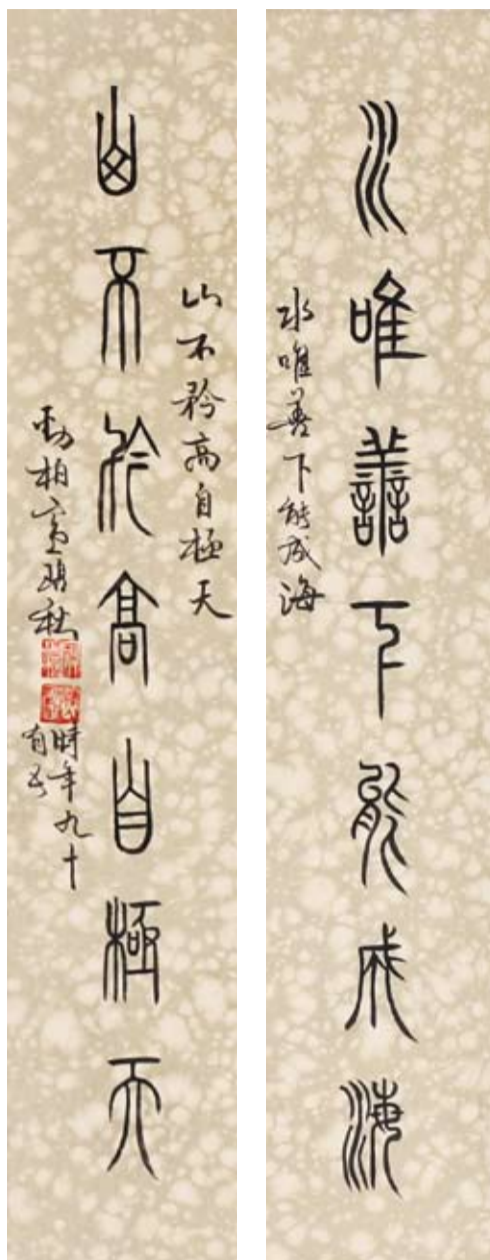 水唯善下能成海
水唯善下能成海
山不矜高自極天
山不矜高自極天
時年九十